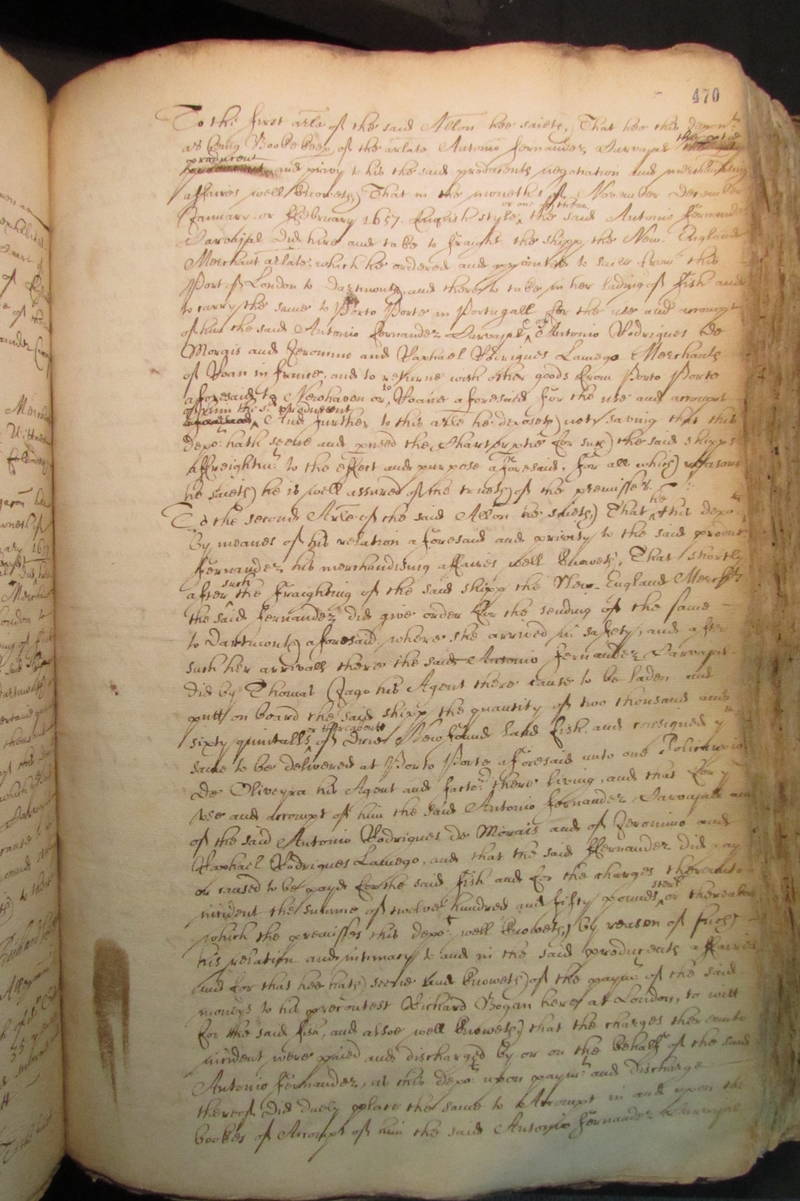 470
To the first arle of the said Allon hee saieth, That hee this depo:t
as being Bookekeeper of the arlate Antonio Fernandez Carvajal
producent and privy to his the said producents negotiation and merchandizing
affaires well knoweth That in the moneths of November December
January or February 1657. English style, or one of them, the said Antonio Fernandez
Carvajal did hire and take to fraight the shipp the New England
Merchant arlate, which he ordered and appointed to saile from this
Port of London to Dartmouth, and there to take in her lading of Fish and
to carry the same to Porto Porte in Portugall for the use and accompt
of him the said Antonio Fernandez Carvajal, Antonio Rodrigues de
Morais and Jeronimo and Raphael Rodrigues Lamego Merchants
of Roan in France, and to returne with other goods from Porto Porte
aforesaid to Newhaven or to Roane aforesaid for the use and accompt
of him the sd producent And further to this arle he deposeth not, saving that this
depo:t hath seene and perused the Charterpartie for such the said shipps
affreightm:t to the effect and purpose aforesaid, For all which reasons
he saieth he is well assured of the trueth of the premisses.
To the second Arle of the said Allon he saieth That he this depo:t
by meanes of his relation aforesaid and privity to the said producent
Fernandez his merchandizing affaires well knoweth, That shortly
after such the fraighting of the said shipp the New England Merch:t
the said Fernandez did give order for the sending of the same
to Dartmouth aforesaid where she arrived in safety, and after
such her arrivall there the said Antonio Fernandez Carvajal
did by Thomas Jago his Agent there cause to be laden and
putt on board the said shipp the quantity of two thousand and
sixty quintalls or thereabouts of dried Newfound land fish, and consigned y:e
same to be delivered at Porto Porte aforesaid unto one Policarpo
de Oliveyra his Agent and factor there living, and that for y:e
use and accompt of him the said Antonio Fernandez Carvajal and
of the said Antonio Rodrigues de Morais and of Jeronimo and
Raphael Rodrigues Lamego, and that the said Fernandez did pay
or caused to be payd for the said fish and for the charges thereunto
incident the summe of twelve hundred and fifty pounds sterl: or thereabouts
which the premisses this depo:t well knoweth by reason of such
his relation and intimacy to and in the said producents affaires
and for that hee hath seene and knoweth of the paym:t of the said
moneys to his precontest Richard Bogan here at London, to witt
for the said fish, and alsoe well knoweth that the charges thereunto
incident were paied and discharged by or on the behalfe of the said
Antonio Fernandez, as this depo:t upon paym:t and discharge
thereof did duely place the same to Accompt in and upon the
bookes of Accompt of him the said Antonio Fernandez Carvajal